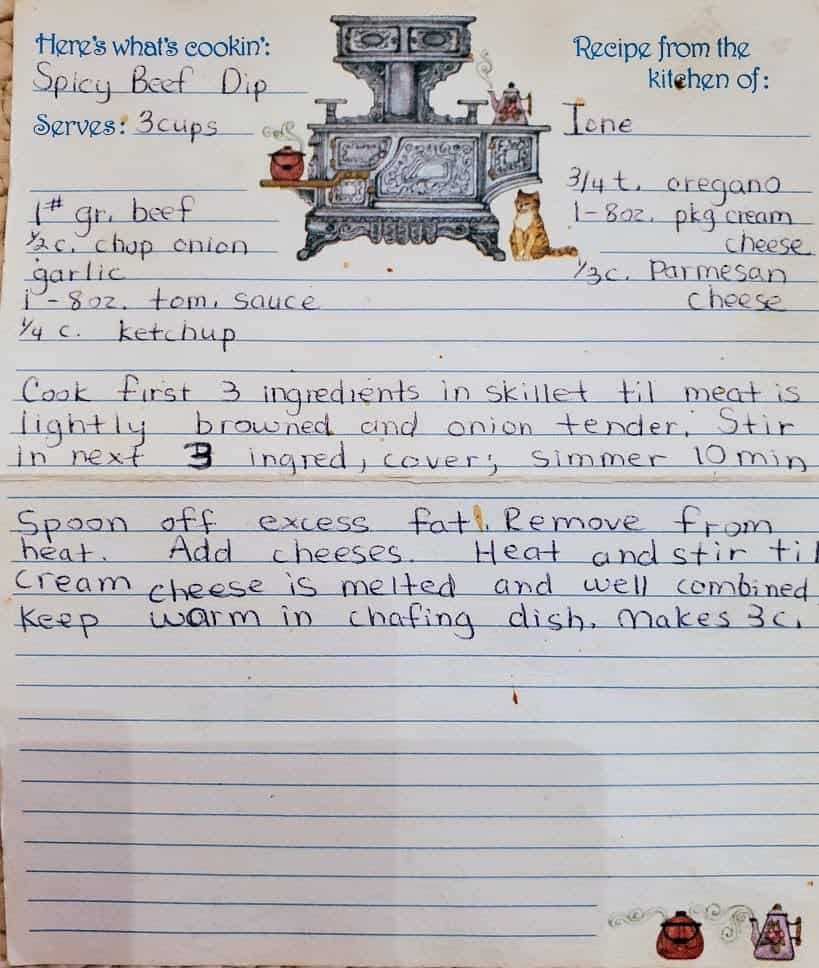 Here's what's cookin':
Spicy Beef Dip
Serves: 3 cups
Recipe from the
kitchen of:
Ione
1# gr. beef
1/2 c. chop onion
garlic
1 - 8 oz. tom. sauce
1/4 c. ketchup
3/4 t. oregano
1 - 8 oz. pkg cream
cheese
1/3 c. Parmesan
cheese
Cook first 3 ingredients in skillet til meat is
lightly browned and onion tender. Stir
in next 3 ingred, cover; simmer 10 min
Spoon off excess fat. Remove from
heat. Add cheeses. Heat and stir til
cream cheese is melted and well combined
Keep warm in chafing dish. Makes 3 c.